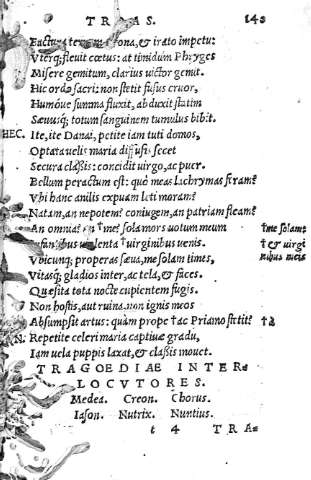 TROAS. 148
terra, & irato impetu:
Vterq; fleuit cœtus: at timidum Phryges
Misere gemitum, clarius uictor gemit.
Hic ordo sacri: non stetit fusus cruor,
Humóue summa fluxit, abduxit statim
Sæuusq; totum sanguinem tumulus bibit.
HEC. Ite, ite Danai, petite iam tuti domos,
Optata uelis maria secet
Secura classis: concidit uirgo, ac puer.
Bellum peractum est: quò meas lachrymas feram?
Vbi hanc anilis expuam leti moram?
Natam, an nepotem? coniugem, an patriam fleam?
An omnia? an †me? sola mors uotum meum †me solam
†uirginibus uenis. † & uirgi
Vbicunq; properas sæua, me solam times, nibus ueis
Vitasq; gladios inter, ac tela, & faces.
Quæsita tota nocte cupientem fugis.
Non hostis, aut ruina, non ignis meos
Absumpsit artus: quàm prope †ac Priamo stetit? †à
N. Repetite celeri maria captiuæ gradu,
Iam uela puppis laxat, & classis mouet.
TRAGOEDIAE INTER-
LOCVTORES.
Medea. Creon. Chorus.
Iason. Nutrix. Nuntius.
t 4 TRA-